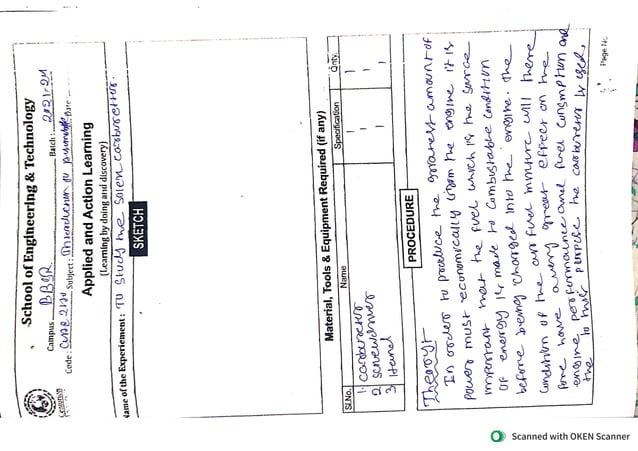 School of Engineering & Technology
Campus BBSR Batch: 2021-24
Code: Subject: Introduction to Date
Applied and Action Learning
(Learning by doing and discovery)
Name of the Experiement : To study the Solex carburettor.
SKETCH
Material, Tools & Equipment Required (if any)
Sl.No. Name Specification Qnty.
1 1 1
2 screwdriver 1 1
3 1
PROCEDURE
Theory:-
In order to produce the greatest amount of
power must economically from the engine it is
important that the fuel which is the source
of energy is made to combustable condition
before being charged into the engine. The
condition of the air fuel mixture will there
fore have a very great effect on the
engine performance and fuel consumption and
the to this purpose the carburetor is used,
Page No
Scanned with OKEN Scanner